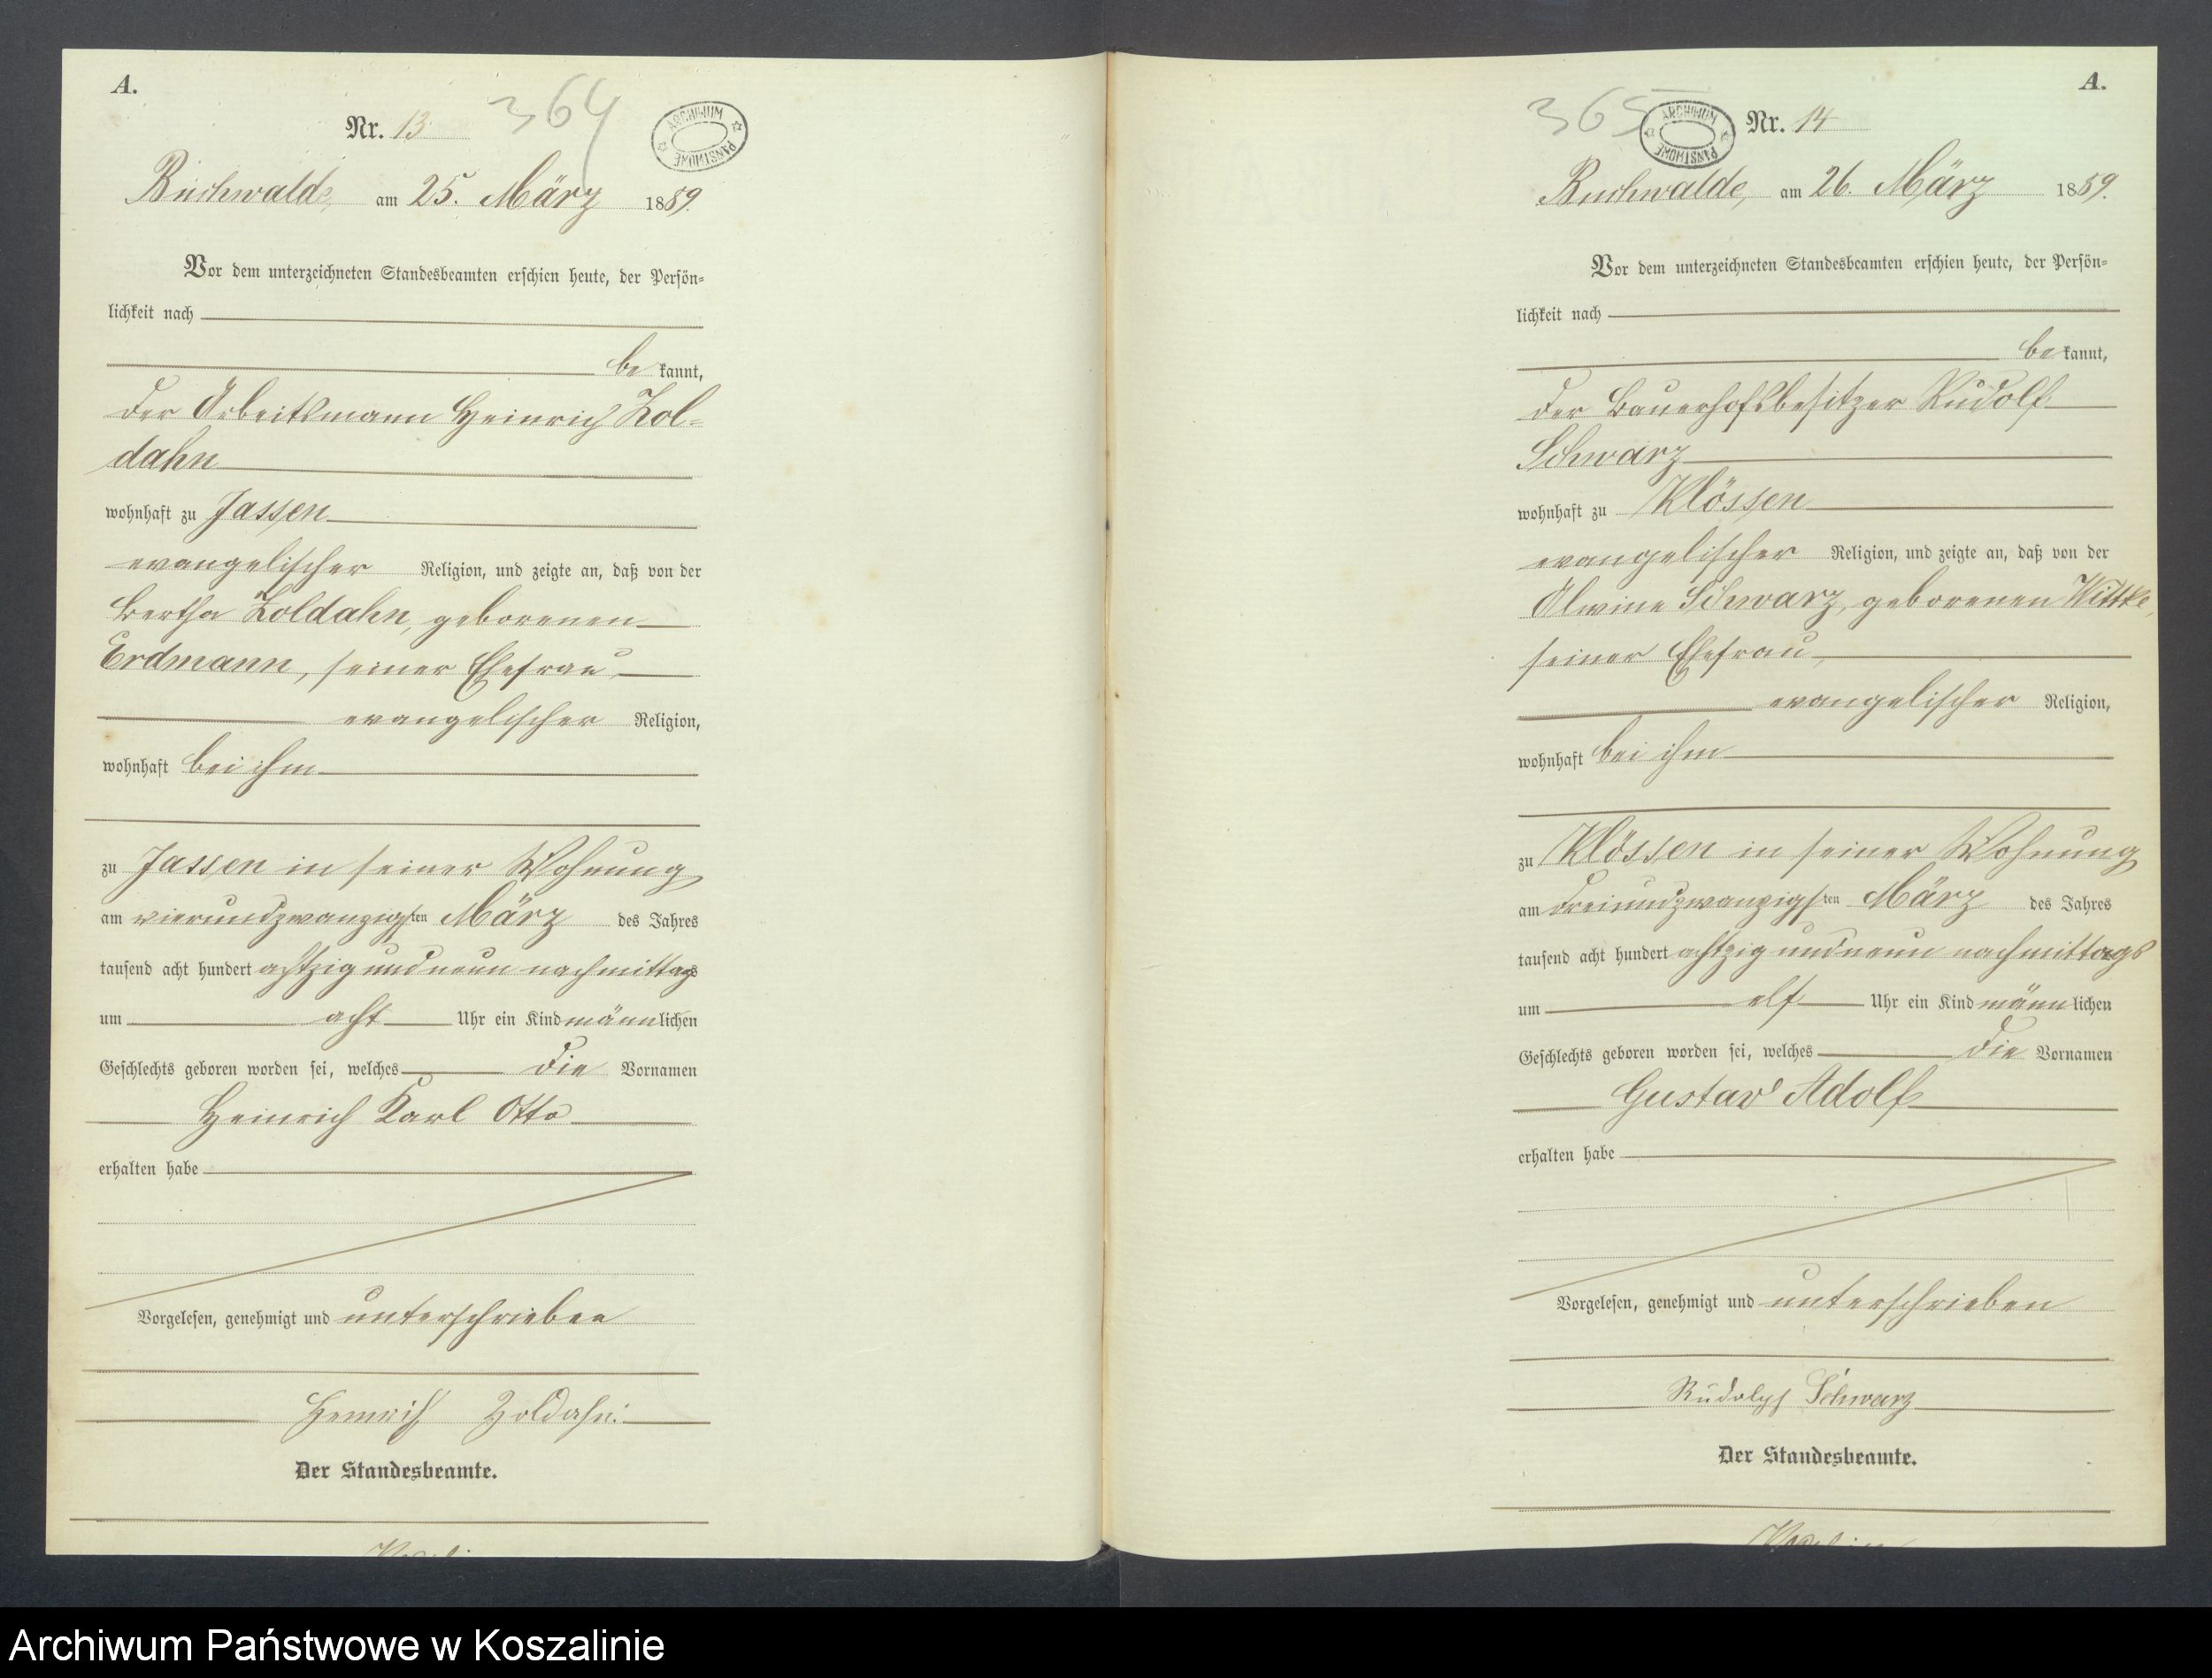 A.
Nr. 13
364
ARCHIWUM PAŃSTWOWE
Buchwalde, am 25. März 1889.
Vor dem unterzeichneten Standesbeamten erschien heute, der Persön-
lichkeit nach
be kannt,
der Arbeitsmann Heinrich Zol-
dahn
wohnhaft zu Jassen
evangelischer Religion, und zeigte an, daß von der
Bertha Zoldahn, geborenen
Erdmann, seiner Ehefrau,
evangelischer Religion,
wohnhaft bei ihm
zu Jassen in seiner Wohnung
am vierundzwanzigsten März des Jahres
tausend acht hundert achtzig und neun nachmittags
um acht Uhr ein Kind männlichen
Geschlechts geboren worden sei, welches die Vornamen
Heinrich Karl Otto
erhalten habe
Vorgelesen, genehmigt und unterschrieben
Heinrich Zoldahn
Der Standesbeamte.
A.
365
ARCHIWUM PAŃSTWOWE
Nr. 14
Buchwalde, am 26. März 1889.
Vor dem unterzeichneten Standesbeamten erschien heute, der Persön-
lichkeit nach
be kannt,
der Bauerhofsbesitzer Rudolf
Schwarz
wohnhaft zu Klössen
evangelischer Religion, und zeigte an, daß von der
Alwine Schwarz, geborenen Wittke,
seiner Ehefrau,
evangelischer Religion,
wohnhaft bei ihm
zu Klössen in seiner Wohnung
am dreiundzwanzigsten März des Jahres
tausend acht hundert achtzig und neun nachmittags
um elf Uhr ein Kind männlichen
Geschlechts geboren worden sei, welches die Vornamen
Gustav Adolf
erhalten habe
Vorgelesen, genehmigt und unterschrieben
Rudolph Schwarz
Der Standesbeamte.
Archiwum Państwowe w Koszalinie